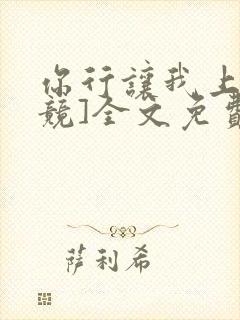 你行讓我上
競]全文免費
薩利希